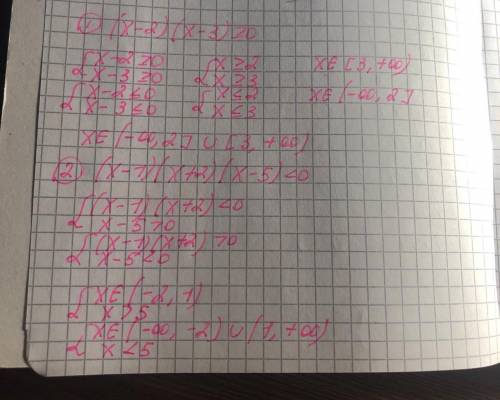 ① (x-2)(x-3)≥0
{x-2≥0 {x≥2 x∈[3,+∞)
{x-3≥0 {x≥3
{x-2≤0 {x≤2 x∈(-∞,2]
{x-3≤0 {x≤3
x∈(-∞,2]∪[3,+∞)
② (x-1)(x+2)(x-5)<0
{(x-1)(x+2)<0
{x-5>0
{(x-1)(x+2)>0
{x-5<0
{x∈(-2,1)
{x>5
{x∈(-∞,-2)∪(1,+∞)
{x<5